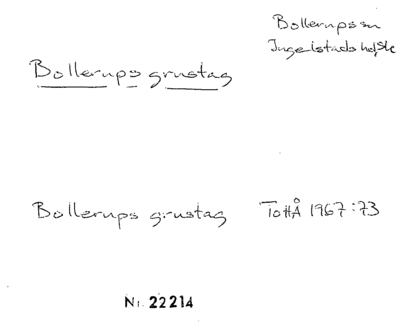 Bollerups sn
Ingelstads hd, Sk
Bollerups grustag
Bollerups grustag TottÅ 1967:73
Nr. 22214